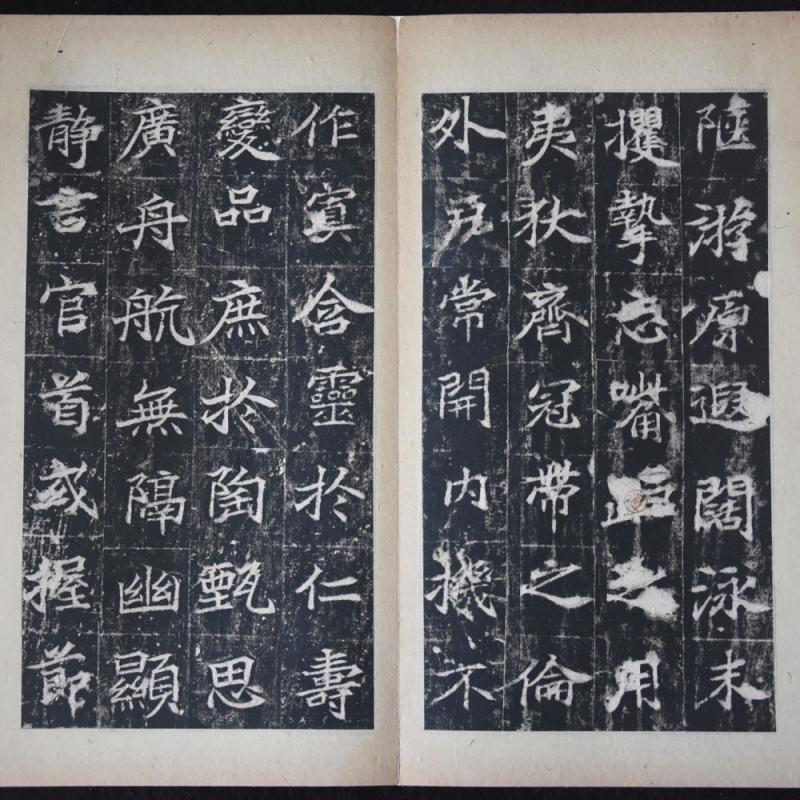 陿游原遐闊泳末
攫摯忘嘴距之用
夷狄齊冠帶之倫
外戶常開内機不
作寘含靈於仁壽
變品庶於陶甄思
廣舟航無隔幽顯
靜言官首或握節